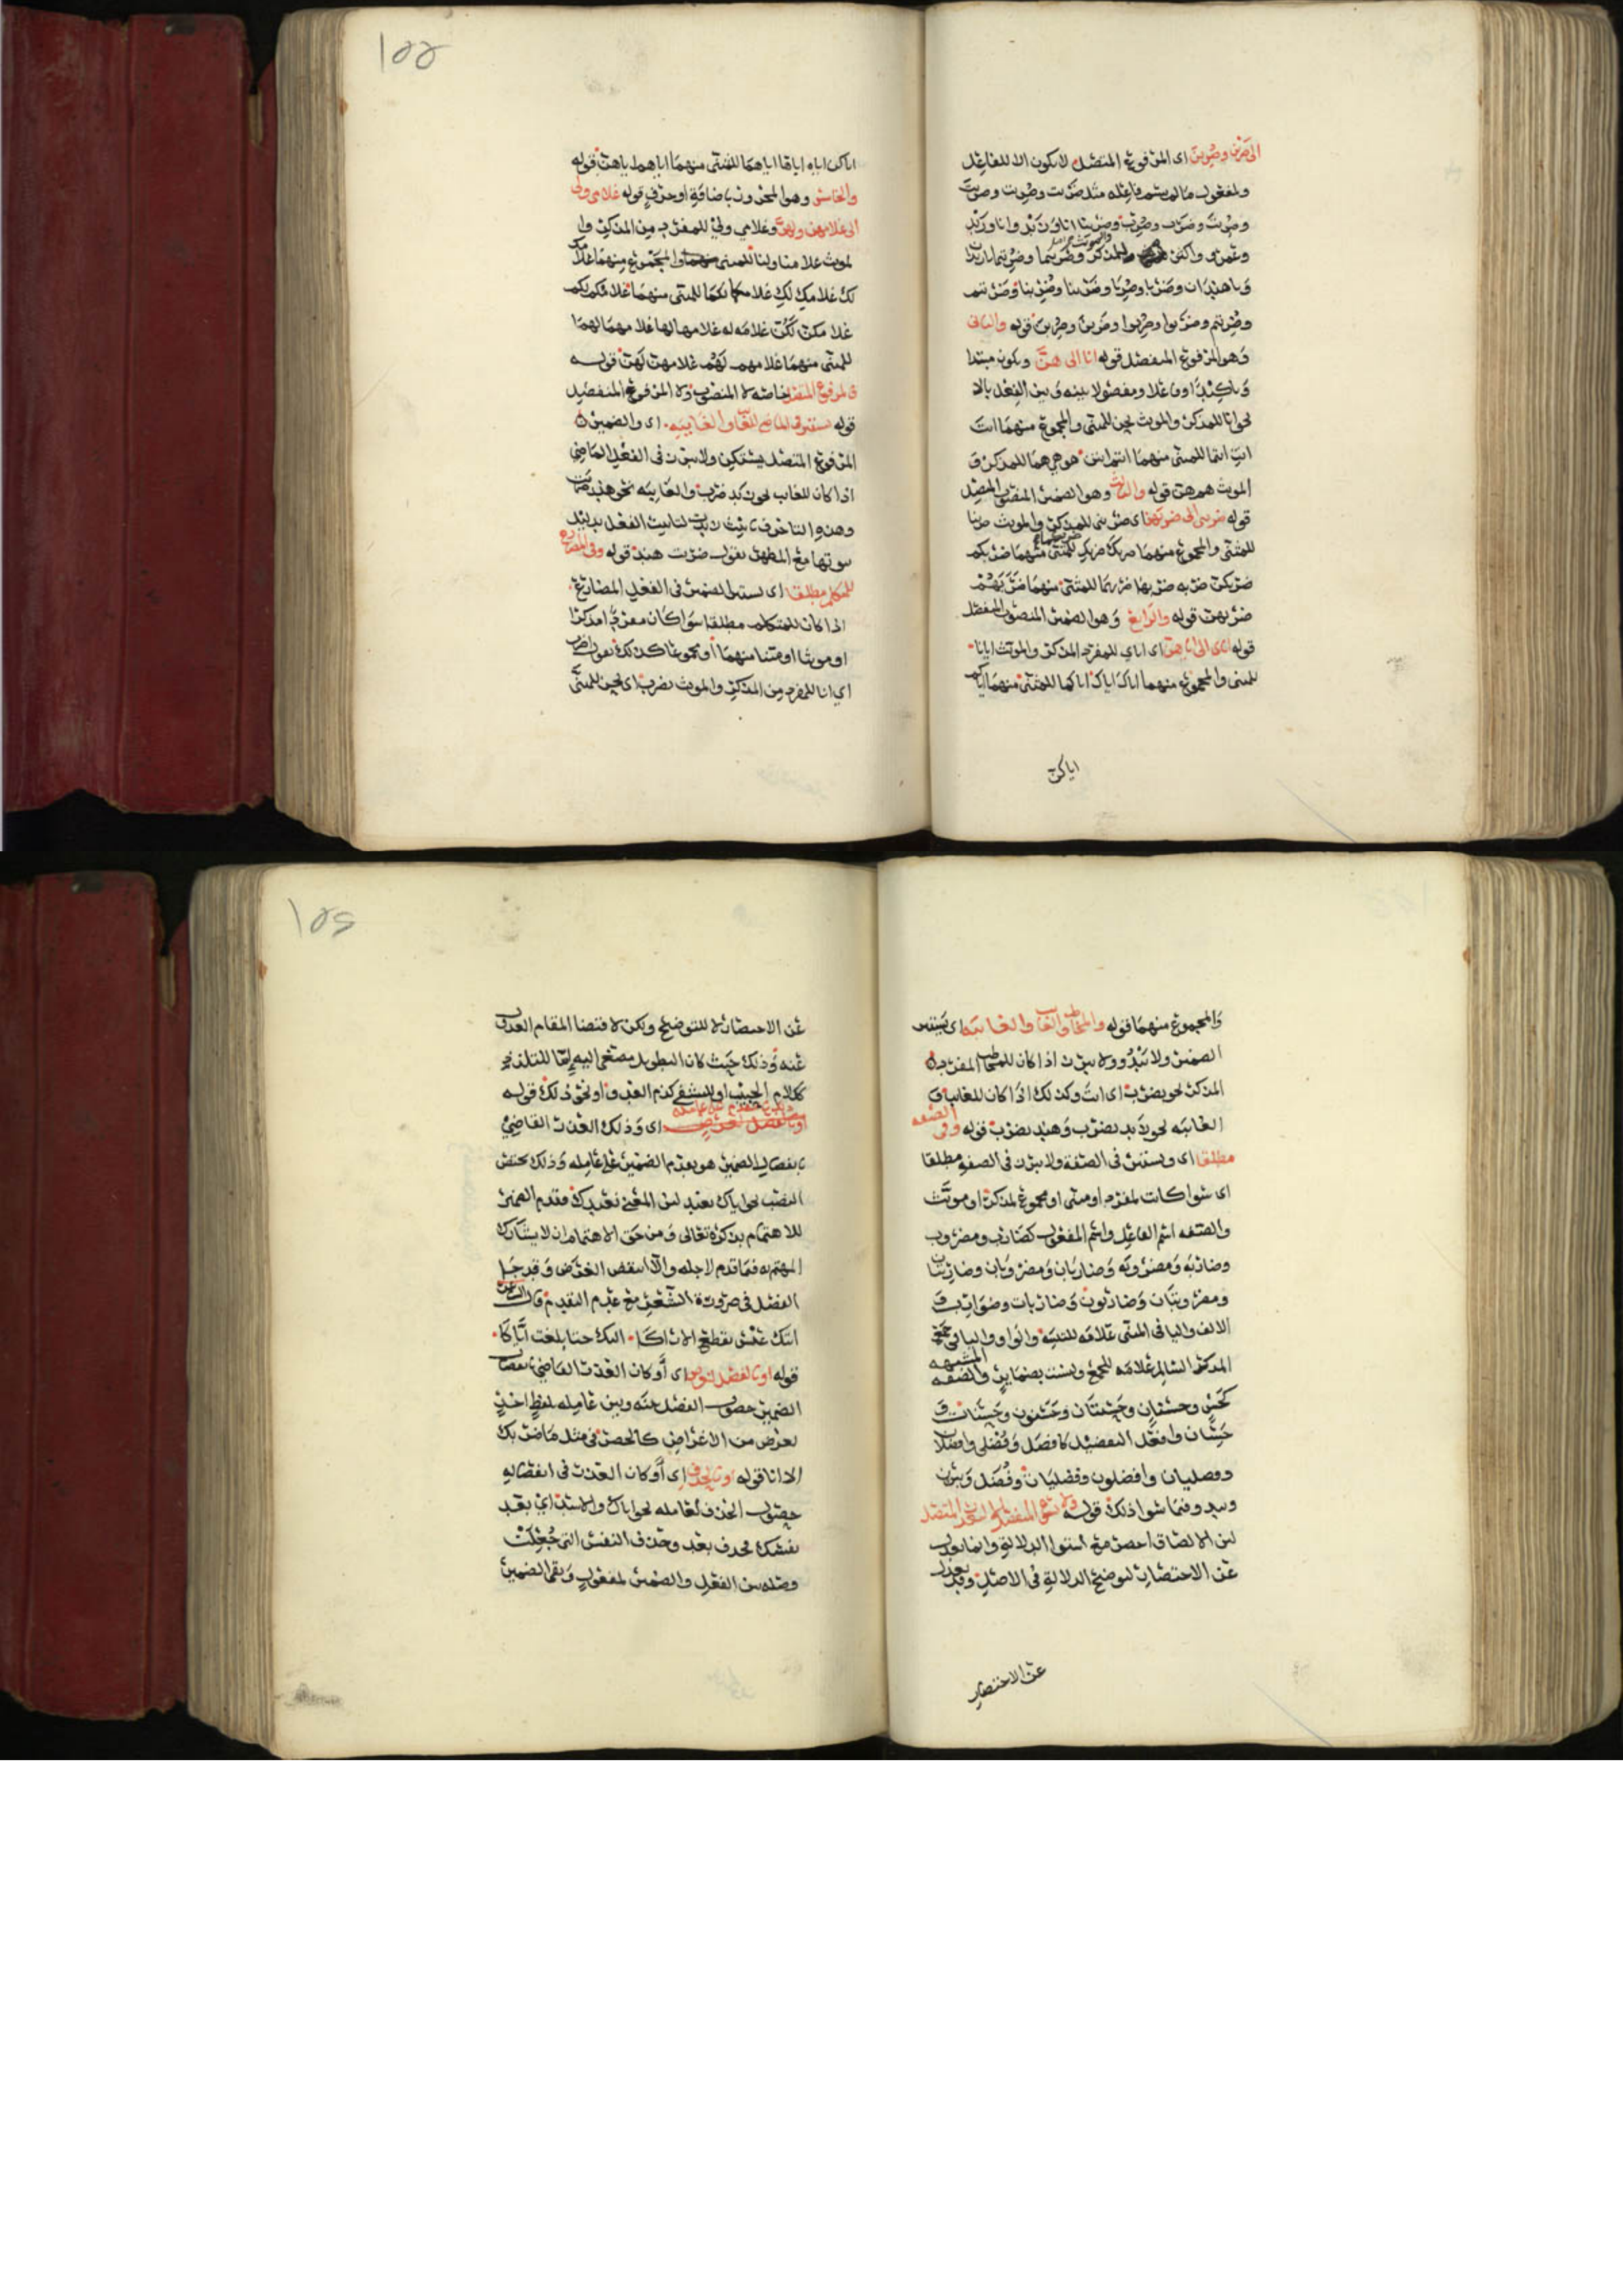 الى ضربن وضربن اى المرفوع المتصل لا يكون الا للفاعل
ولمفعول ما لم يسم فاعله مثل ضربت وضربت وضربت
وضربت وضربت وضربت وضربنا انا وزيد وانا وزيد
وعمرو
وضربتم وضربوا وضربوا وضربن وضربن قوله والثانى
وهو المرفوع المنفصل قوله انا الى هن ويكون مبتدا
او فاعلا ومفصولا بينه وبين الفعل بالا
نحو انا للمذكر والمونث نحن للمثنى والمجموع منهما انت
انت انتما للمثنى منهما انتم انتن هو هي هما للمذكر و
المونث هم هن قوله والثالث وهو الضمير المنصوب المتصل
قوله ضربنى الى ضربهن اى ضربنى للمذكر والمونث ضربنا
للمثنى والمجموع منهما ضربك ضربك للمثنى منهما ضربكم
ضربكن ضربه ضربها ضربهما للمثنى منهما ضربهم
ضربهن قوله والرابع وهو الضمير المنصوب المنفصل
قوله اياى الى اياهن اى اياي للمفرد المذكر والمونث ايانا
للمثنى والمجموع منهما اياك اياك اياكما للمثنى منهما اياكم
اياكن
١٥٥
اياكن اياه اياها اياهما للمثنى منهما اياهم اياهن قوله
والخامس وهو المجرور باضافة او حرف قوله غلامى ولى
الى غلامهن ولهن وغلامي ولي للمفرد من المذكر وا
لمونث غلامنا ولنا للمثنى والمجموع منهما غلامك
لك غلامك لك غلامكما لكما للمثنى منهما غلامكم لكم
غلامكن لكن غلامه له غلامها لها غلامهما لهما
للمثنى منهما غلامهم لهم غلامهن لهن قوله
فالمرفوع المتصل خاصة لا المنصوب ولا المرفوع المنفصل
قوله يستتر فى الماضى للغايب والغايبه اى والضمير
المرفوع المتصل يستكن ولا يبرز فى الفعل الماضي
اذا كان للغايب نحو زيد ضرب والغايبه نحو هند ضربت
وهذه التا حرف تانيث زيدت لتانيث الفعل بدليل
ثبوتها مع المظهر تقول ضربت هند قوله وفى المضارع
للمتكلم مطلقا اى يستتر الضمير فى الفعل المضارع
اذا كان للمتكلم مطلقا سوا كان مفردا مذكرا
او مونثا او مثنا منهما او مجموعا كذلك تقول اضرب
اي انا للمفرد من المذكر والمونث نضرب اى نحن للمثنى
والمجموع منهما قوله والمخاطب والغايب والغايبه اى يستتر
الضمير ولا يبدو ولا يبرز اذا كان للمخاطب المفرد
المذكر نحو يضرب اى انت وكذلك اذا كان للغايب و
الغايبه نحو زيد يضرب وهند تضرب قوله وفى الصفه
مطلقا اى ويستتر فى الصفة ولا يبرز فى الصفه مطلقا
اى سوا كانت لمفرد او مثنى او مجموع لمذكر او مونث
والصفه اسم الفاعل واسم المفعول كضارب ومضروب
وضاربه ومضروبه وضاربان ومضروبان وضاربتان
ومضروبتان وضاربون وضاربات وضوارب و
الالف واليا فى المثنى علامه للتثنيه والواو واليا فى جمع
المذكر السالم علامه للجمع وليست بضماير والصفه المشبهه
كحسن وحسنان وحسنتان وحسنون وحسنات و
حسان وافعل التفضيل كافضل وفضلى وافضلان
وفضليان وافضلون وفضليات وفضل ويبرز
ويبدو فيما سوا ذلك قوله ولا يسوغ المنفصل الا لتعذر المتصل
لان الاتصال اخصر مع استوا الدلالة وانما يعدل
عن الاختصار لتوضيح الدلالة فى الاصل وقد يعدل
عن الاختصار
١٥٦
عن الاختصار لا للتوضيح ولكن لاقتضا المقام العدول
عنه وذلك حيث كان التطويل مصغى اليه اما للتلذذ
ككلام الحبيب او للتشفي كذم العدو او نحو ذلك قوله
وذلك بالتقدم على عامله او بالفصل لغرض اى وذلك العذر القاضي
بانفصال الضمير هو تقدم الضمير على عامله وذلك يختص
النصب نحو اياك نعبد لان المعنى نعبدك فقدم الضمير
للاهتمام بذكره تعالى ومن حق الاهتمام ان لا يشارك
المهتم به فيما قدم لاجله والا انتقض الغرض وقد جا
الفصل فى ضرورة الشعر مع عدم التقدم قال الراجز
اتتك عنس تقطع الاراكا اليك حتا بلغت اياكا
قوله او بالفصل لغرض اى او كان العذر القاضي بانفصال
الضمير حصول الفصل بينه وبين عامله بلفظ اخر
لغرض من الاغراض كالحصر فى مثل ما ضربك
الا انا قوله او بالحذف اى او كان العذر فى انفصاله
حصول الحذف لعامله نحو اياك والاسد اي بعد
نفسك فحذف بعد وحذف النفس التى جعلت
وصله بين الفعل والضمير لمفعول وبقى الضمير